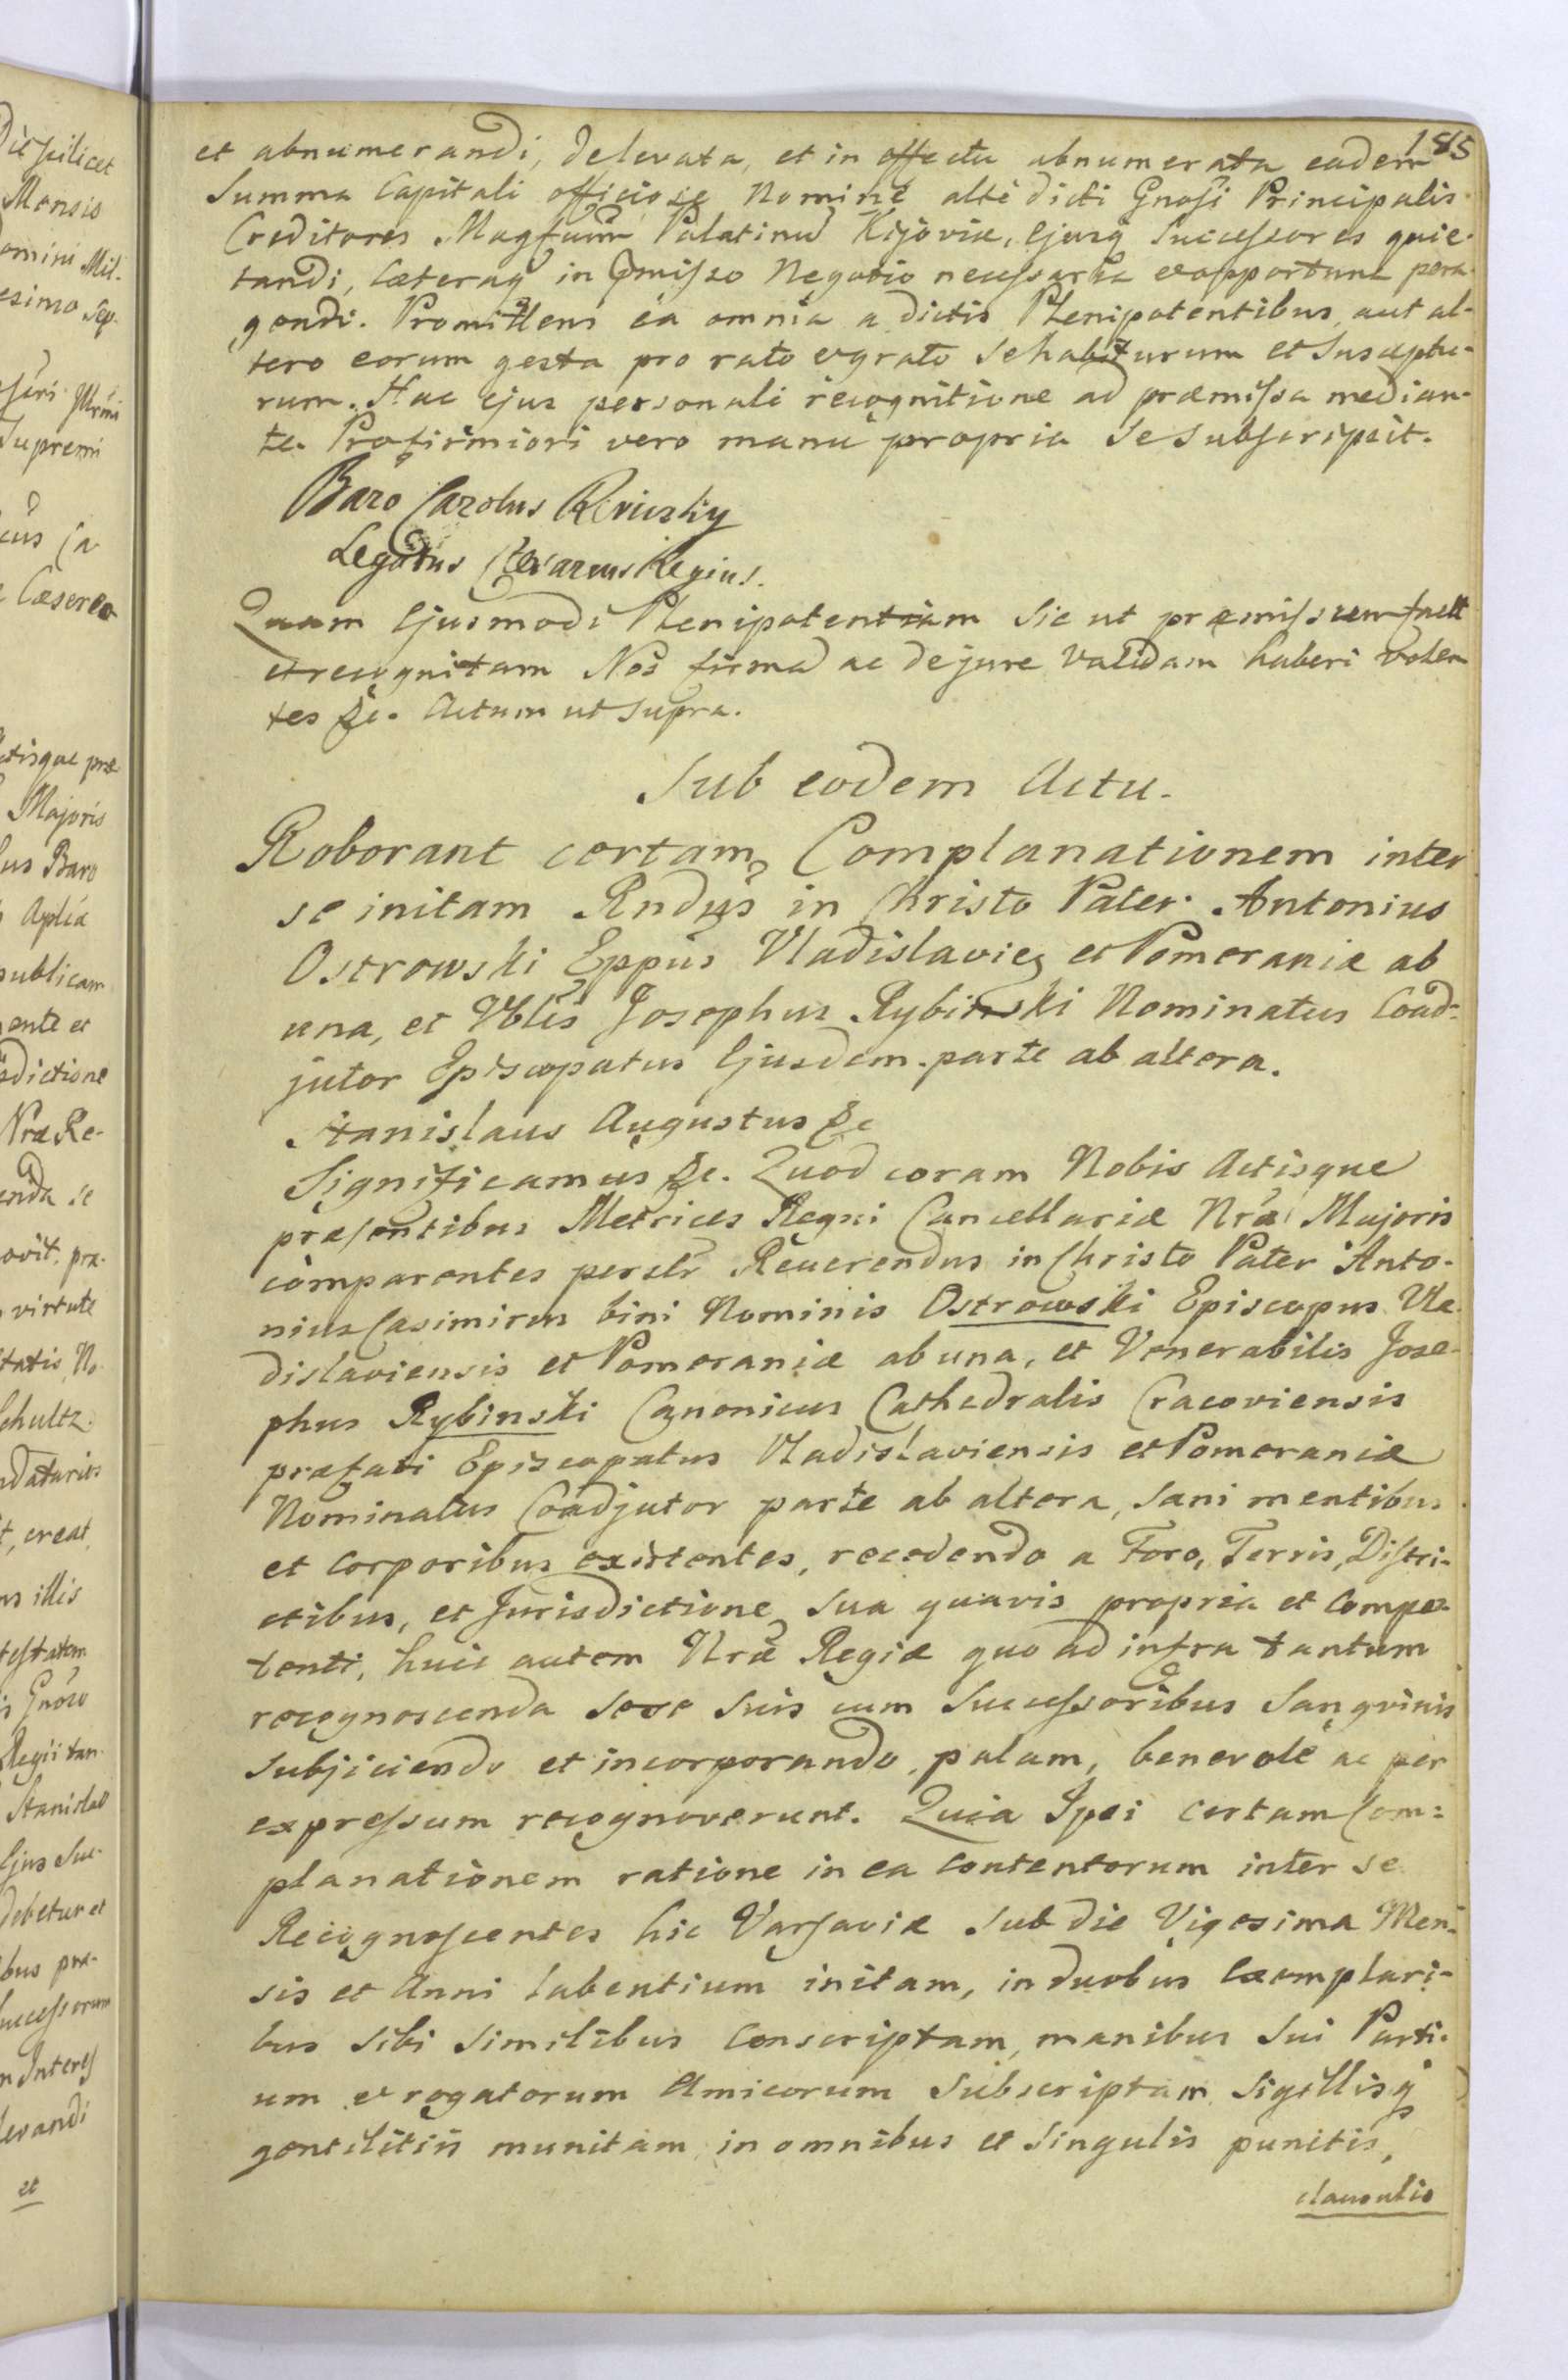 185
et abnumerandi, delevata, et in effectu abnumerata eadem
Summa Capitali officiose Nomine altè dicti Gnosi Principalis
Creditores Magficum Palatinum Kijoviæ, Ejusq Successores quie-
tandi, Cæteraq in præmisso Negotio necessaria et opportuna pera-
gendi. Promittens ea omnia a dictis Plenipotentibus, aut al-
tero eorum gesta pro rato et grato se habiturum et susceptu-
rum. Hac ejus personali recognitione ad præmissa median-
te. Pro firmiori vero manu propria se subscripsit.
Baro Carolus Reviczky
Legatus Cæsareus Regius.
Quam Ejusmodi Plenipotentiam sic ut præmissum fact
et recognitam Nos firmam ac de jure validam haberi volen
tes &c. Actum ut supra.
Sub eodem Actu.
Roborant certam Complanationem inter
se initam Rndus in Christo Pater Antonius
Ostrowski Eppus Vladislavien et Pomeraniæ ab
una, et Vblis Josephus Rybinski Nominatus Coad-
jutor Episcopatus Ejusdem parte ab altera.
Stanislaus Augustus &c
Significamus &c. Quod coram Nobis Actisque
præsentibus Metrices Regni Cancellariæ Nræ Majoris
comparentes persltr Reverendus in Christo Pater Anto-
nius Casimirus bini Nominis Ostrowski Episcopus Vla-
dislaviensis et Pomeraniæ ab una, et Venerabilis Jose-
phus Rybinski Canonicus Cathedralis Cracoviensis
præfati Episcopatus Vladislaviensis et Pomeraniæ
Nominatus Coadjutor parte ab altera, sani mentibus
et corporibus existentes, recedendo a Foro, Terris, Distri-
ctibus, et Jurisdictione sua quavis propria et Compe-
tenti, huic autem Nræ Regiæ quo ad infra tantum
recognoscenda sese suis cum Successoribus Sangvinis
subjiciendo et incorporando, palam, benevole ac per
expressum recognoverunt. Quia Ipsi certam Com-
planationem ratione in ea contentorum inter se
Recognoscentes hic Varsaviæ sub die Vigesima Men-
sis et Anni labentium initam, in duobus Exemplari-
bus sibi similibus conscriptam, manibus sui Parti-
um et rogatorum Amicorum subscriptam Sigillisq
gentilitiis munitam, in omnibus et singulis punctis,
clausulis